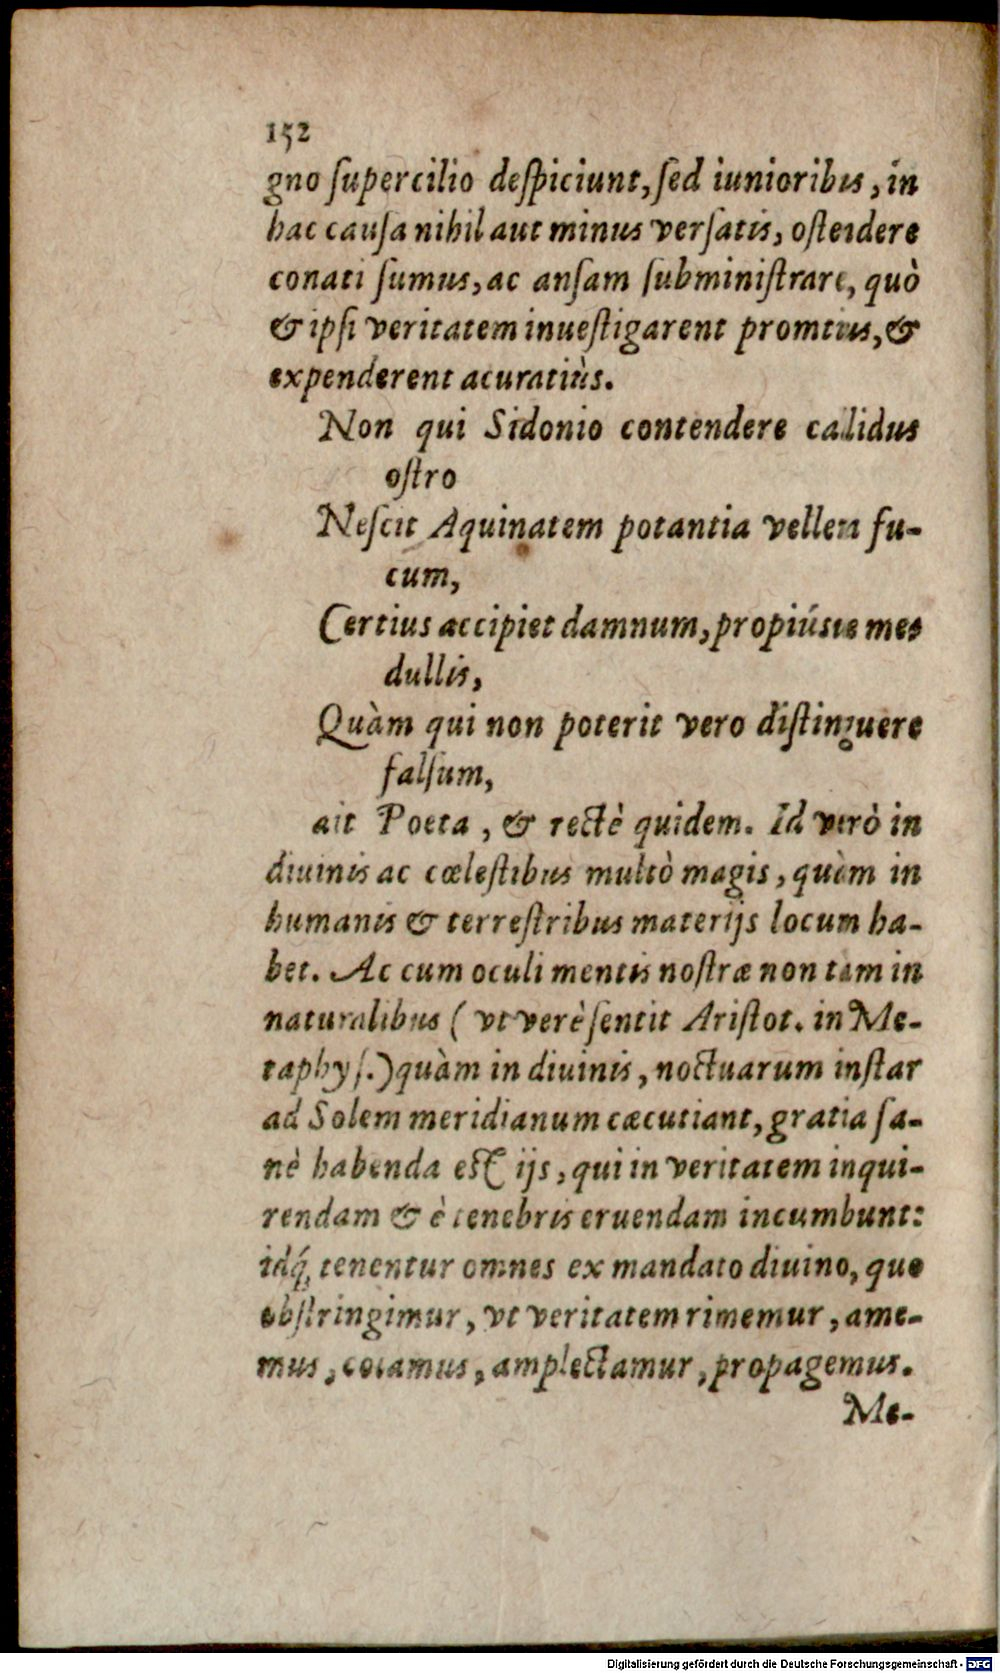 152
gno ſupercilio deſpiciunt, ſed iunioribus, in
hac cauſa nihil aut minus verſatis, oſtendere
conati ſumus, ac anſam ſubminiſtrare, quò
& ipſi veritatem inueſtigarent promtius, &
expenderent acuratiùs.
Non qui Sidonio contendere callidus
oſtro
Neſcit Aquinatem potantia vellera fu-
cum,
Certius accipiet damnum, propiúsue me-
dullis,
Quàm qui non poterit vero diſtinguere
falſum,
ait Poeta, & rectè quidem. Id verò in
diuinis ac cœleſtibus multò magis, quàm in
humanis & terreſtribus materijs locum ha-
bet. Ac cum oculi mentis noſtræ non tam in
naturalibus ( vt verè ſentit Ariſtot. in Me-
taphyſ.) quàm in diuinis, noctuarum inſtar
ad Solem meridianum cæcutiant, gratia ſa-
nè habenda eſt ijs, qui in veritatem inqui-
rendam & è tenebris eruendam incumbunt:
idq́; tenentur omnes ex mandato diuino, quo
obſtringimur, vt veritatem rimemur, ame-
mus, amplectamur, propagemus.
Me-
Digitalisierung gefördert durch die Deutsche Forschungsgemeinschaft - DFG